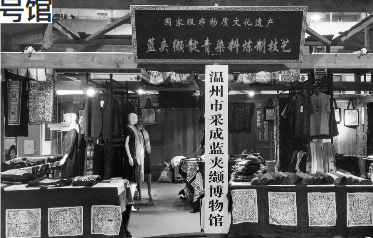 号馆
国家级非物质文化遗产
蓝夹缬靛青染料炼制技艺
温州市采成蓝夹缬博物馆